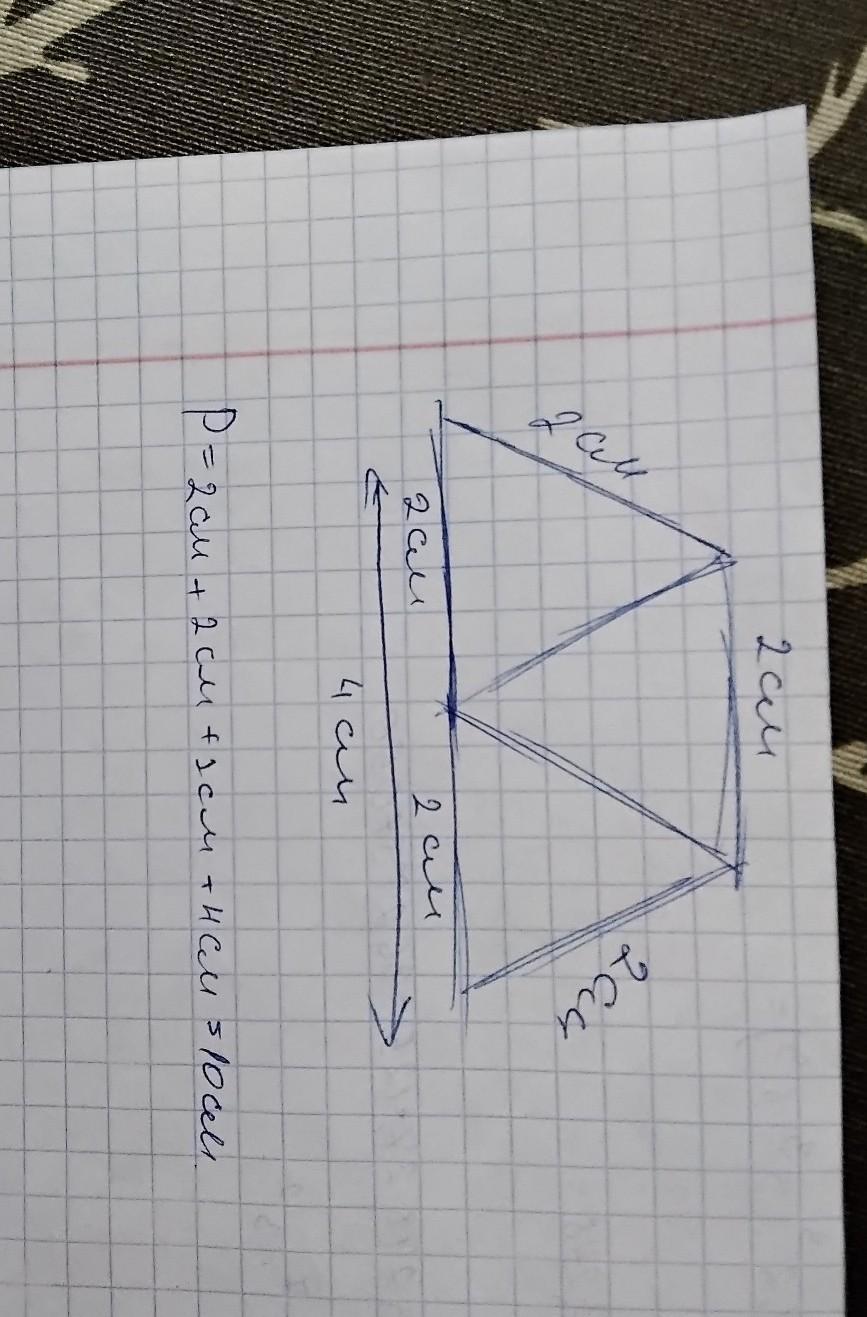 2см
2см
2см
2см
2см
4см
P = 2см + 2см + 2см + 4см = 10см